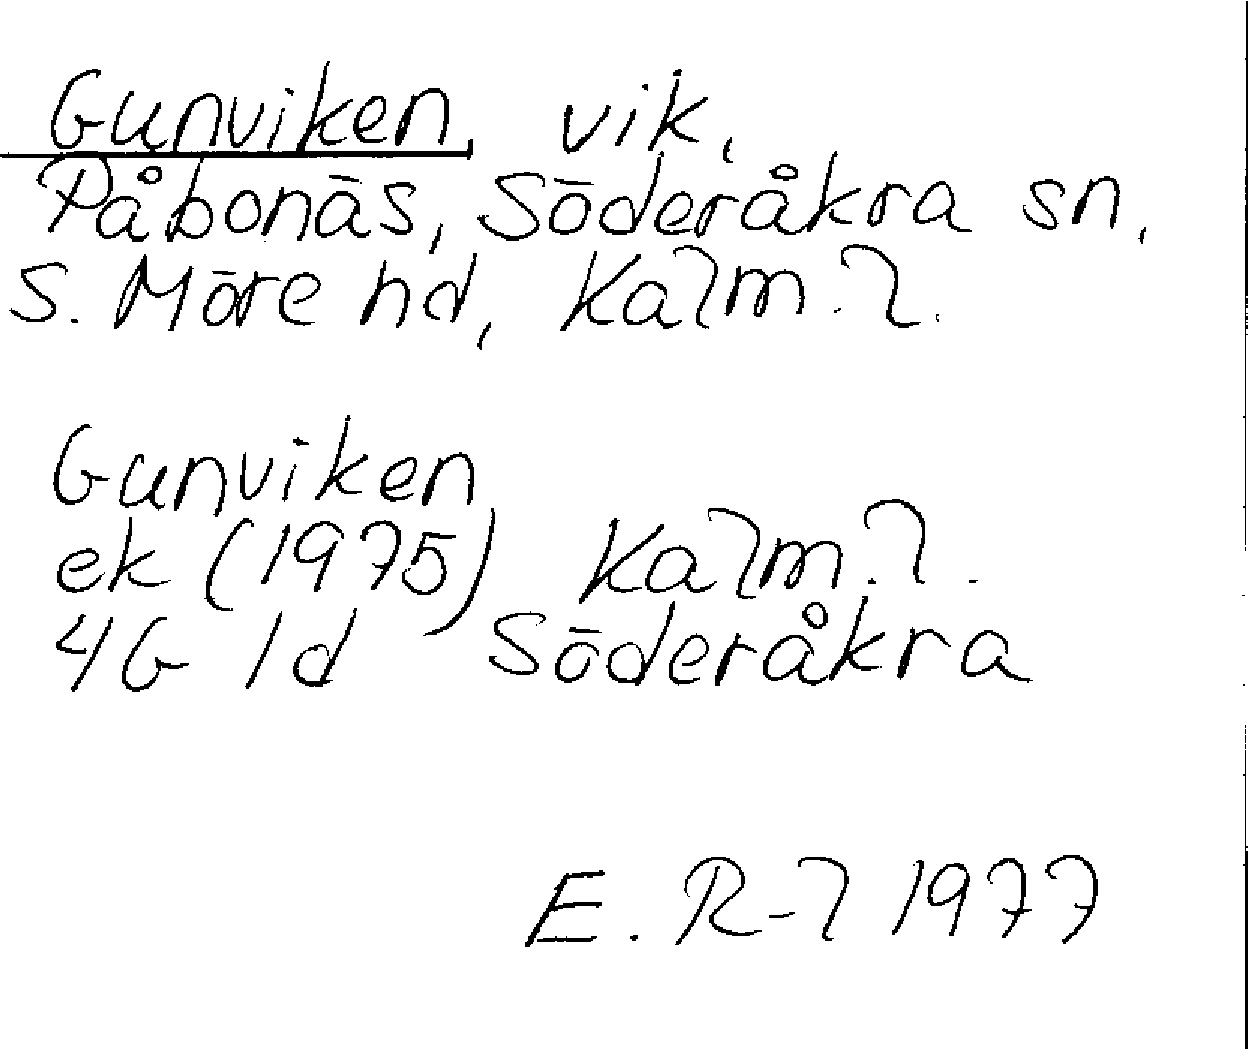 Gunviken, vik,
Påbonäs, Söderåkra sn,
S. Möre hd, Kalm. l.
Gunviken
ek (1975) Kalm. l.
4G 1d Söderåkra
E. R-l 1977